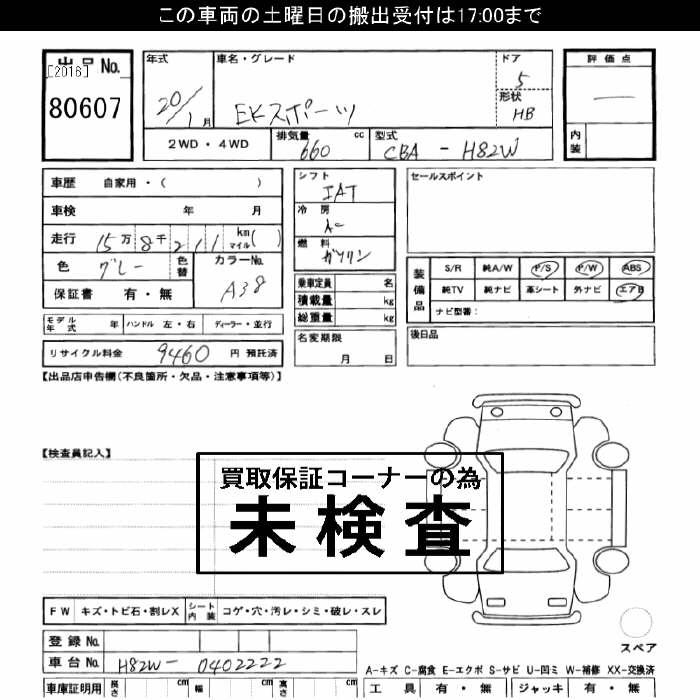 この車両の土曜日の搬出受付は17:00まで
出品No. [2016] 80607
年式 20/1月
車名・グレード EKスポーツ
ドア 5
形状 HB
評価点 —
内装
2WD・4WD
排気量 660 cc
型式 CBA - H82W
車歴 自家用・( )
車検 年 月
走行 15万8千211 km マイル( )
色 グレー 色替
カラーNo. A38
保証書 有・無
シフト IAT
冷房
燃料 ガソリン
乗車定員 名
積載量 kg
総重量 kg
セールスポイント
装備品 S/R 純A/W P/S P/W ABS
純TV 純ナビ 革シート 外ナビ エアB
ナビ型番:
モデル年式 年 ハンドル 左・右 ディーラー・並行
名変期限 月 日
後日品
リサイクル料金 9460 円 預託済
【出品店申告欄(不良箇所・欠品・注意事項等)】
【検査員記入】
買取保証コーナーの為
未検査
FW キズ・トビ石・割レX シート内装 コゲ・穴・汚レ・シミ・破レ・スレ
スペア
登録No.
車台No. H82W- 0402222
A-キズ C-腐食 E-エクボ S-サビ U-凹ミ W-補修 XX-交換済
車庫証明用 長さ cm 幅 cm 高さ cm
工具 有・無 ジャッキ 有・無